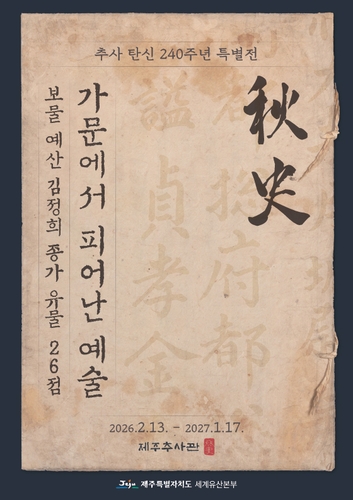 추사 탄신 240주년 특별전
秋史
가문에서 피어난 예술
보물 예산 김정희 종가 유물 26점
2026.2.13. – 2027.1.17.
제주추사관
Jeju 제주특별자치도 세계유산본부
諡貞孝金